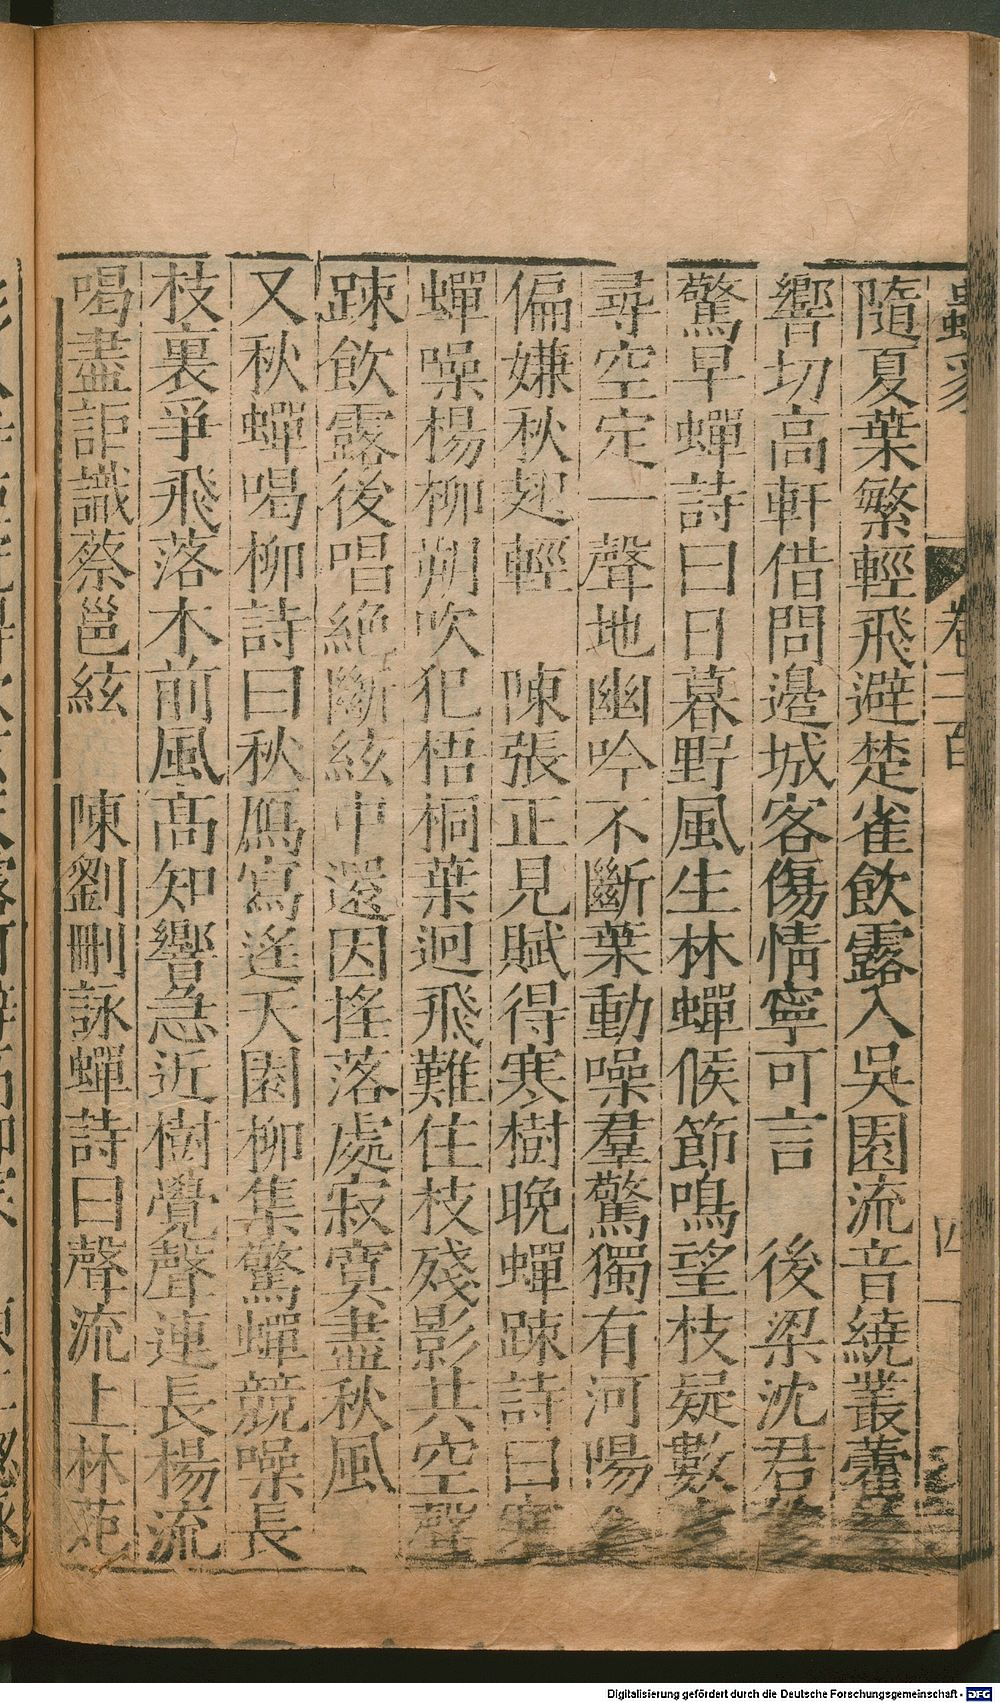 蟲豸 卷二百 四
隨夏葉繁輕飛避楚雀飲露入吳園流音繞叢藿
響切高軒借問邊城客傷情寧可言 後梁沈君攸
驚早蟬詩曰日暮野風生林蟬候節鳴望枝疑數處
尋空定一聲地幽吟不斷葉動噪羣驚獨有河陽令
偏嫌秋翅輕 陳張正見賦得寒樹晚蟬踈詩曰寒
蟬噪楊柳朔吹犯梧桐葉迥飛難住枝殘影共空聲
踈飲露後唱絶斷絃中還因搖落處寂寞盡秋風
又秋蟬喝柳詩曰秋鴈寫遙天園柳集驚蟬競噪長
枝裏爭飛落木前風高知響急近樹覺聲連長楊流
喝盡詎識蔡邕絃 陳劉刪詠蟬詩曰聲流上林苑
Digitalisierung gefördert durch die Deutsche Forschungsgemeinschaft - DFG